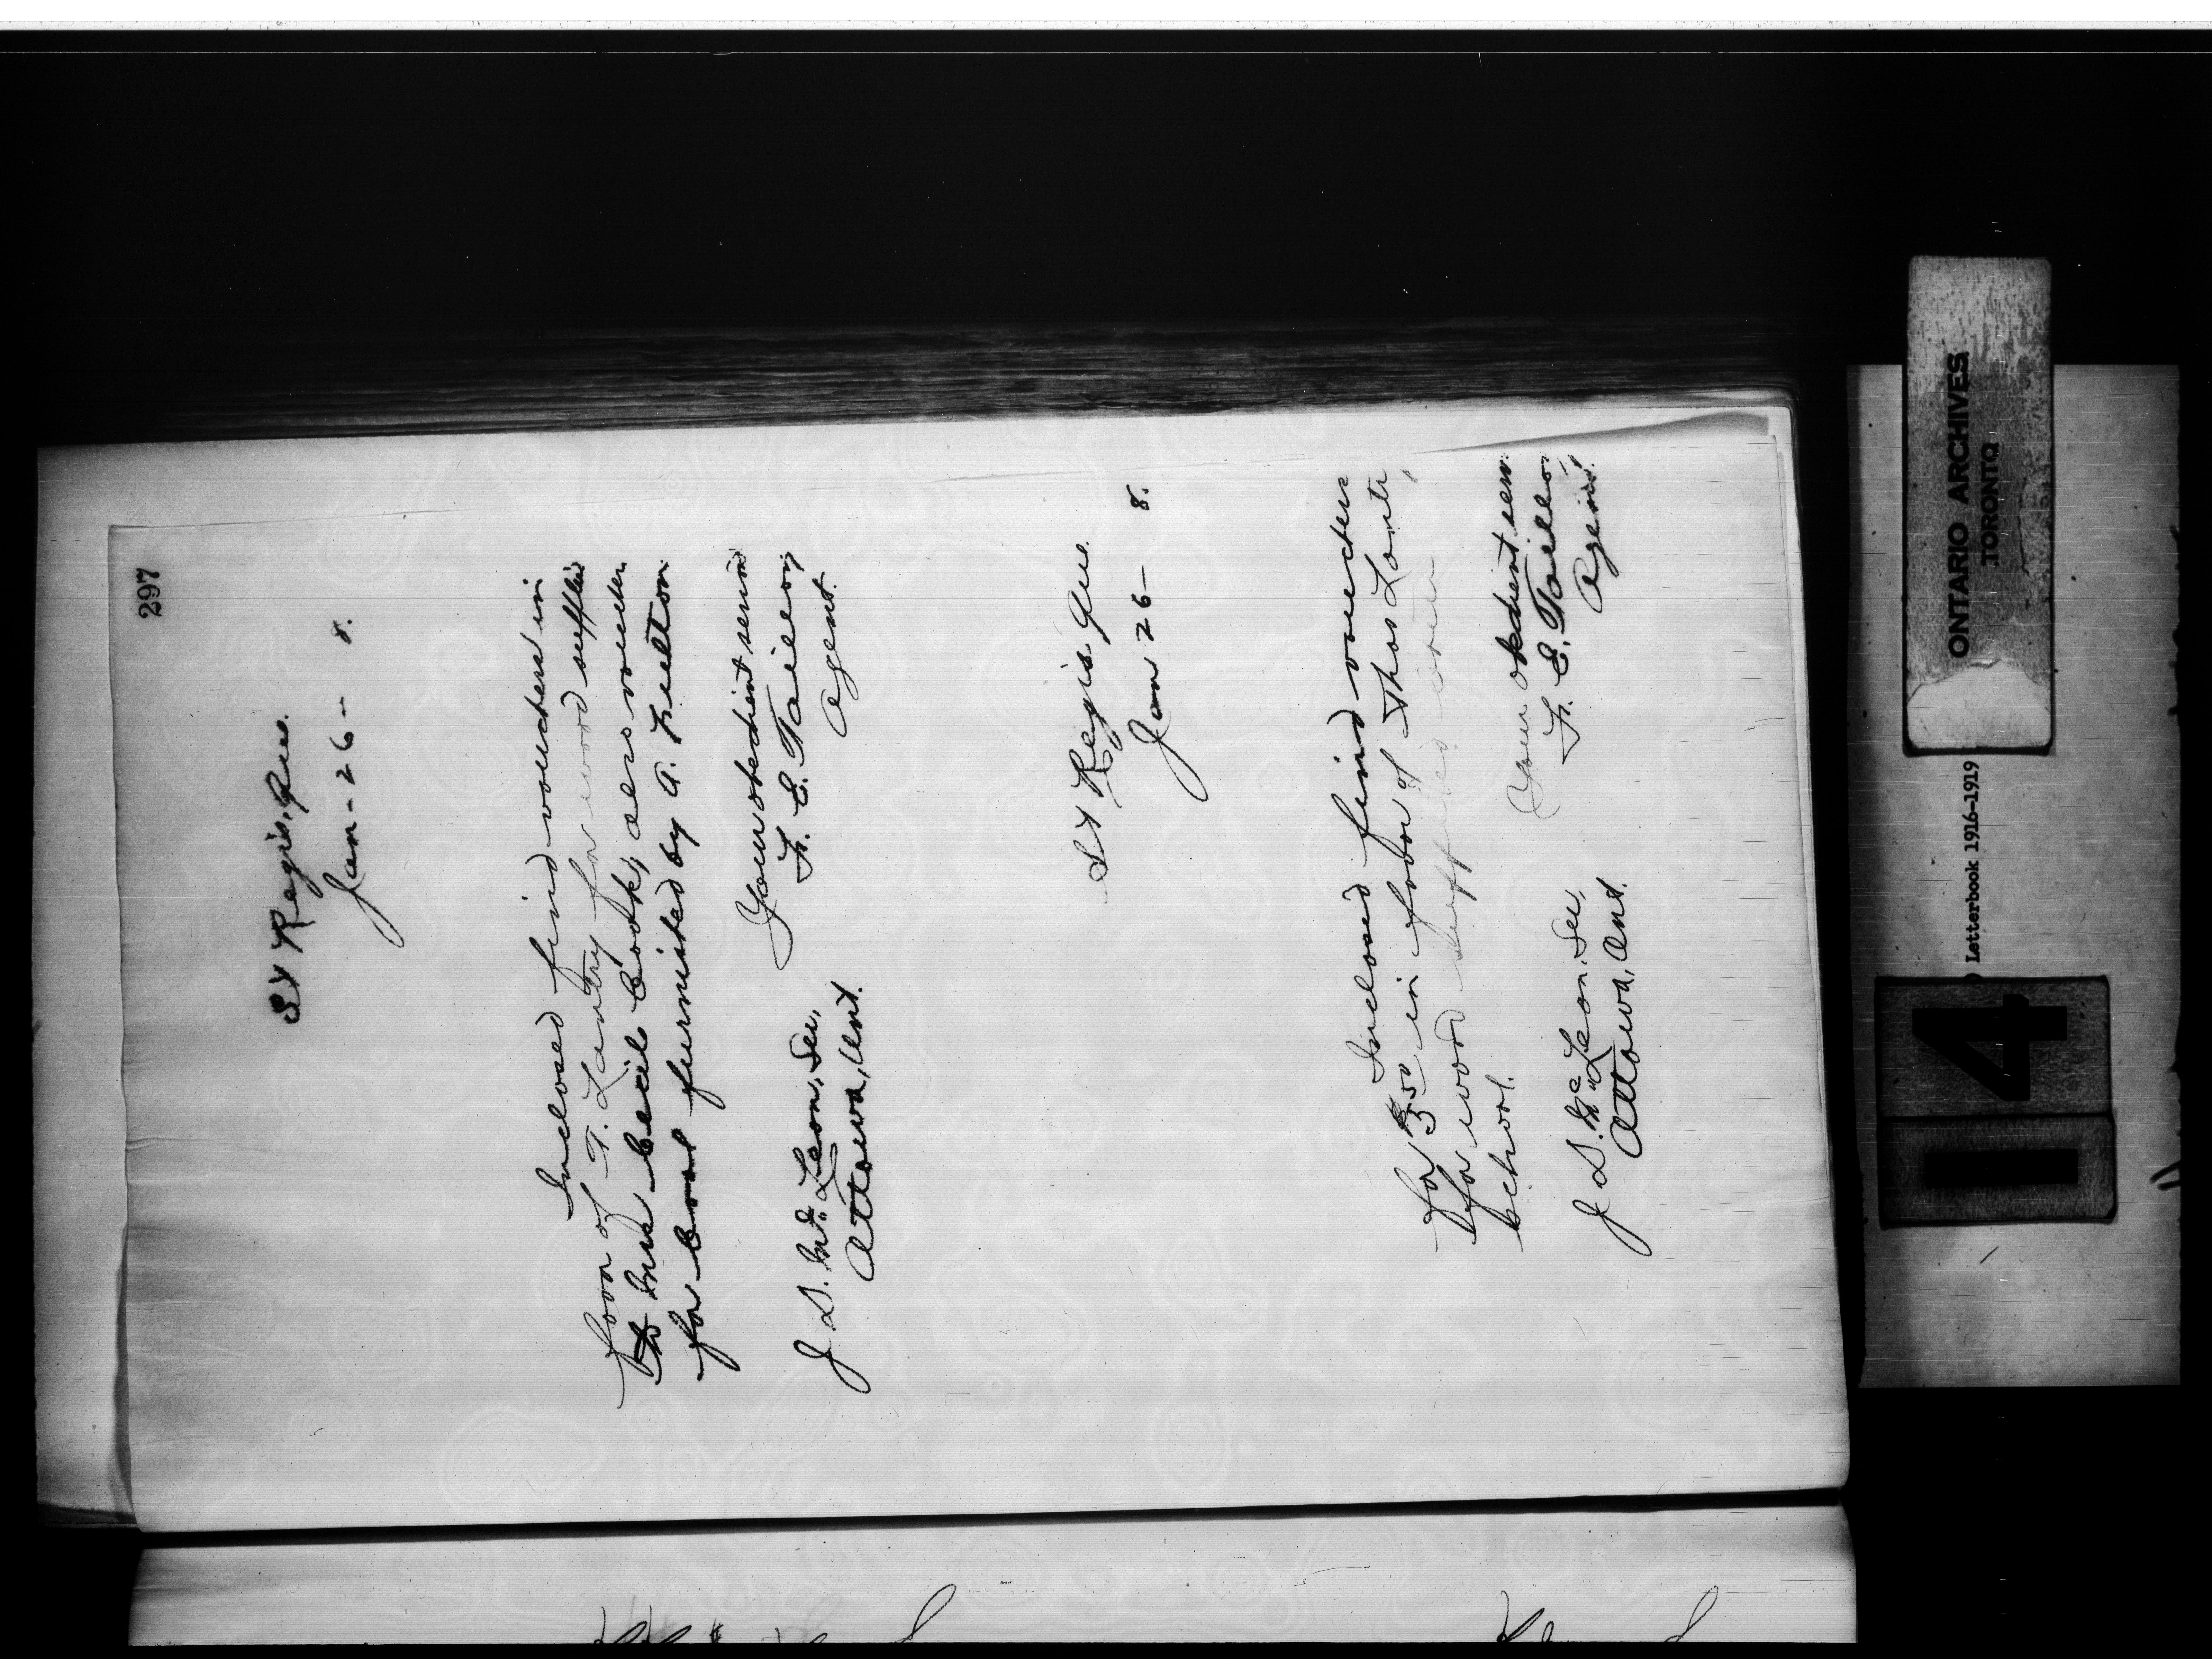 297
St Regis, Que.
Jan-26- 8.
Inclosed find vouchers in
favor of T. Lantry for wood supplied
to Mrs Cook, also voucher
for coal furnished by A. Fulton
Your obedient servant
F. E. Taillon
Agent.
J. D. McLean, Sec,
Ottawa, Ont.
St Regis Que.
Jan 26- 8.
Inclosed find voucher
for $3.50 in favor of Thos Lantry
for wood supplied
school.
Your obedient serv
F. E. Taillon
Agent
J. D. McLean, Sec,
Ottawa, Ont.
ONTARIO ARCHIVES
TORONTO
Letterbook 1916-1919
14